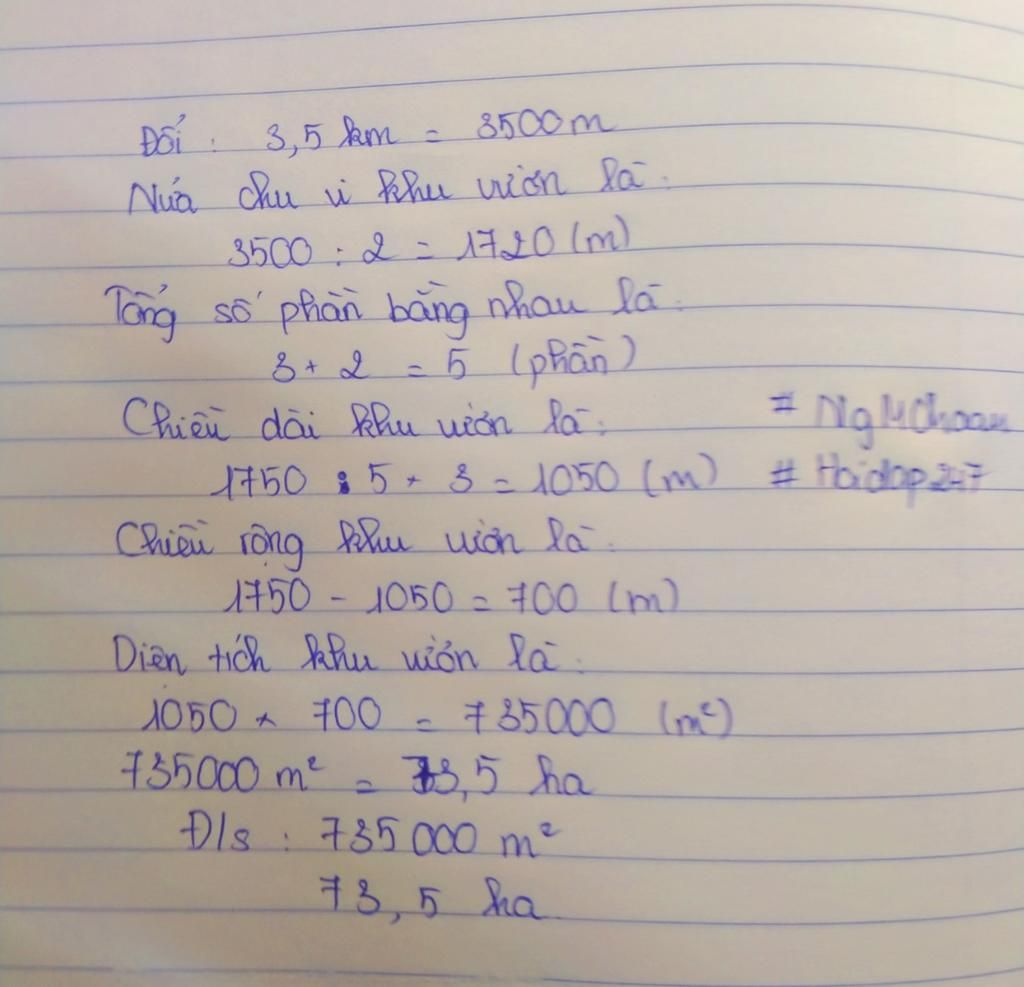 Đổi : 3,5 km = 3500m
Nửa chu vi khu vườn là :
3500 : 2 = 1720 (m)
Tổng số phần bằng nhau là :
3 + 2 = 5 (phần)
Chiều dài khu vườn là :
1750 : 5 × 3 = 1050 (m)
# NgMChaau
# Hoidap247
Chiều rộng khu vườn là :
1750 - 1050 = 700 (m)
Diện tích khu vườn là :
1050 × 700 = 735000 (m²)
735000 m² = 73,5 ha
Đ/s : 735000 m²
73,5 ha